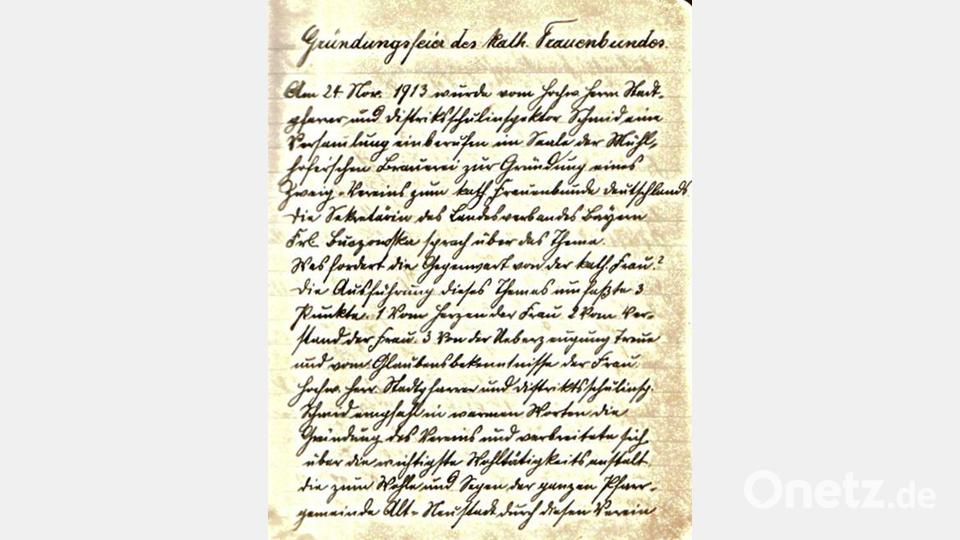 Gründungsfeier des kath. Frauenbundes.
Am 24. Nov. 1913 wurde vom hochw. Herrn Stadt-
pfarrer und Distriktsschulinspektor Schmid eine
Versamlung einberufen im Saale der Mühl-
hofer'schen Brauerei zur Gründung eines
Zweig-Vereins zum kath. Frauenbunde Deutschlands
Die Sekretärin des Landesverbandes Bayern
Frl. Buczowska sprach über das Thema.
Was fordert die Gegenwart von der kath. Frau?
Die Ausführung dieses Themas umfaßte 3
Punkte. 1 Vom Herzen der Frau 2 Vom Ver-
stand der Frau. 3 Von der Ueberzeugung Treue
und vom Glaubensbekenntnisse der Frau
Hochw. Herr Stadtpfarrer und Distriktsschulinsp.
Schmid empfahl in warmen Worten die
Gründung des Vereins und verbreitete sich
über die wichtigste Wohltätigkeitsanstalt
die zum Wohle und Segen der ganzen Pfarr-
gemeinde Alt-Neustadt durch diesen Verein
Onetz.de